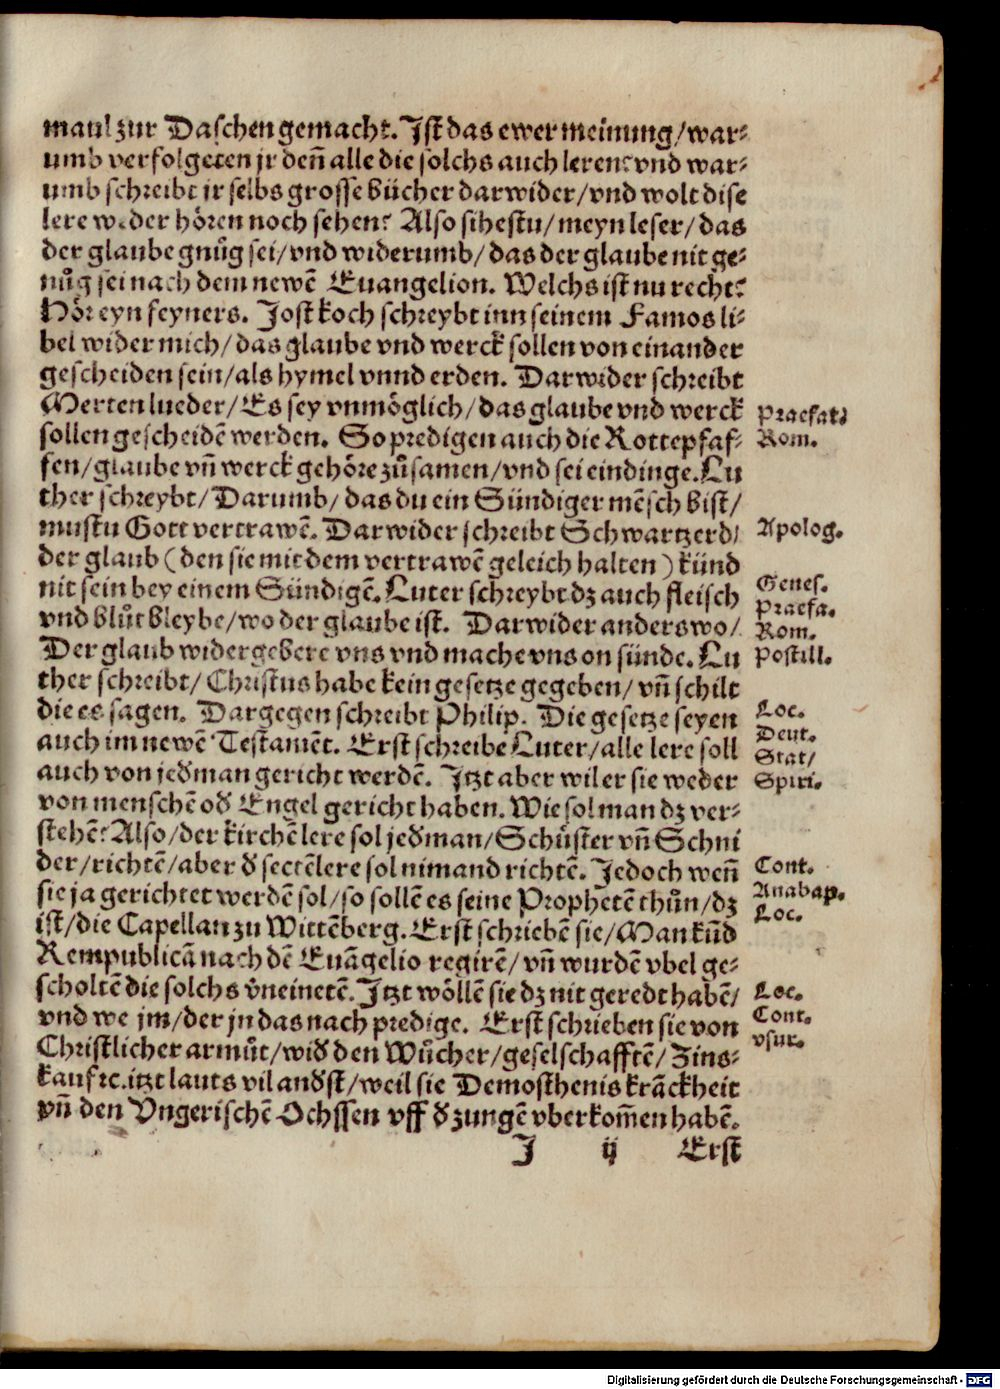 maul zur Daschen gemacht. Jst das ewer meinung/ war-
umb verfolgeten jr deñ alle die solchs auch leren? vnd war-
umb schreibt ir selbs grosse bücher darwider/ vnd wolt dise
lere weder hören noch sehen? Also sihestu/ meyn leser/ das
der glaube gnůg sei/ vnd widerumb/ das der glaube nit ge-
nůg sei nach dem newẽ Euangelion. Welchs ist nu recht?
Hör eyn feyners. Jost koch schreybt inn seinem Famos li-
bel wider mich/ das glaube vnd werck sollen von einander
gescheiden sein/ als hymel vnnd erden. Darwider schreibt
Merten lueder/ Es sey vnmöglich/ das glaube vnd werck
Praefat.
sollen gescheidẽ werden. So predigen auch die Rottepfaf-
Rom.
fen/ glaube vñ werck gehöre zůsamen/ vnd sei ein dinge. Lu
ther schreybt/ Darumb/ das du ein Sündiger mẽsch bist/
mustu Gott vertrawẽ. Darwider schreibt Schwartzerd/
Apolog.
der glaub (den sie mit dem vertrawẽ geleich halten) künd
nit sein bey einem Sündigẽ. Luter schreybt dz auch fleisch
Genes.
vnd blůt bleybe/ wo der glaube ist. Darwider anderswo/
Praefa.
Rom.
Der glaub widergebere vns vnd mache vns on sünde. Lu
Postill.
ther schreibt/ Christus habe kein gesetze gegeben/ vñ schilt
die es sagen. Dargegen schreibt Philip. Die gesetze seyen
Loc.
auch im newẽ Testamẽt. Erst schreibe Luter/ alle lere soll
Deut.
Stat/
auch von jeđman gericht werdẽ. Jtzt aber wil er sie weder
Spiri.
von menschẽ ođ Engel gericht haben. Wie sol man dz ver-
stehẽ? Also/ der kirchẽ lere sol jeđman/ Schůster vñ Schni
der/ richtẽ/ aber đ sectẽ lere sol nimand richtẽ. Jedoch weñ
Cont.
sie ja gerichtet werdẽ sol/ so sollẽ es seine Prophetẽ thůn/ dz
Anabap.
ist/ die Capellan zu Wittẽberg. Erst schriebẽ sie/ Man kũd
Loc.
Rempublicã nach dẽ Euãgelio regirẽ/ vñ wurdẽ vbel ge-
scholtẽ die solchs v̊neinetẽ. Jtzt wöllẽ sie dz nit geredt habẽ/
Loc.
vnd we jm/ der jn das nach predige. Erst schrieben sie von
Cont.
Christlicher armůt/ wiđ den Wůcher/ geselschafftẽ/ Zins-
vsur.
kauf ꝛc. itzt lauts vil anđst/ weil sie Demosthenis krãckheit
vñ den Vngerischẽ Ochssen vff đ zungẽ vberkom̃en habẽ.
J ij Erst
Digitalisierung gefördert durch die Deutsche Forschungsgemeinschaft - DFG